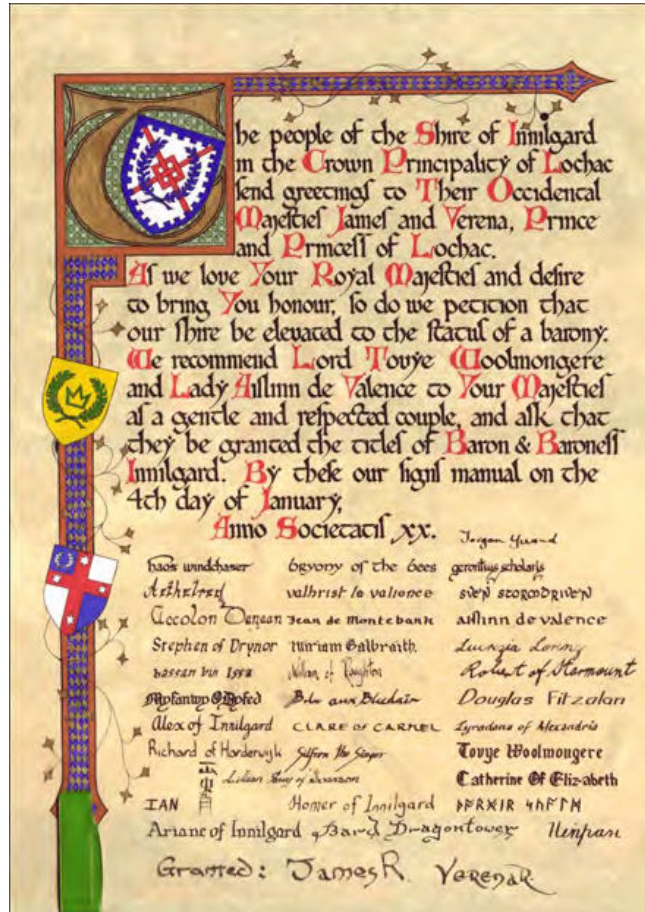 The people of the Shire of Innilgard
in the Crown Principality of Lochac
send greetings to Their Occidental
Majesties James and Verena, Prince
and Princess of Lochac.
As we love Your Royal Majesties and desire
to bring You honour, so do we petition that
our shire be elevated to the status of a barony.
We recommend Lord Tovye Woolmongere
and Lady Aislinn de Valence to Your Majesties
as a gentle and respected couple, and ask that
they be granted the titles of Baron & Baroness
Innilgard. By these our signs manual on the
4th day of January,
Anno Societatis xx.
haos windchaser bryony of the bees gerontius scholaris
valhrist le valience SVEN STORMDRIVEN
Accolon Jean de Montebank aislinn de valence
Stephen of Drynor Miriam Galbraith.
bassan bin issa of Robert of
Douglas Fitzalan
Alex of Innilgard CLARE OF CARMEL of Alexandria
Richard of Harderwijk Tovye Woolmongere
Catherine Of Eliz-abeth
IAN Homer of Innilgard
Ariane of Innilgard Dragontower
Granted: James R. Verena R.